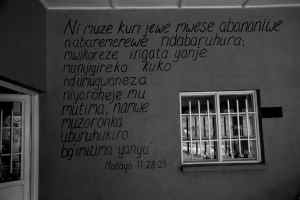 Ni muze kuri jewe mwese abananiwe
n'abaremerewe ndabaruhura;
mwikoreze ingata yanje
munyigireko kuko
ndumugwaneza
niyoroheje mu
mutima, namwe
muzoronka
uburuhukiro
bg'imitima yanyu
Matayo 11:28-29